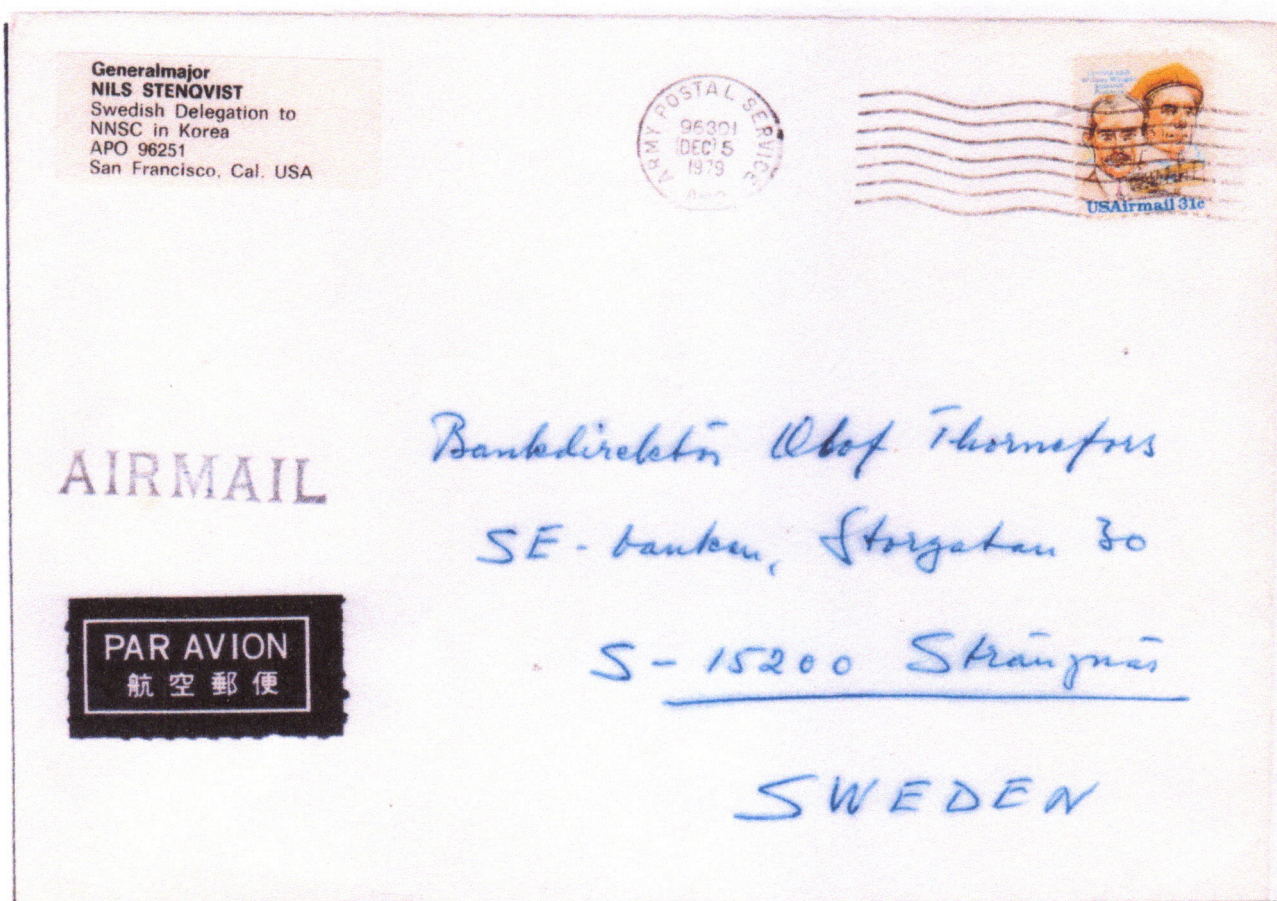 Generalmajor
NILS STENQVIST
Swedish Delegation to
NNSC in Korea
APO 96251
San Francisco, Cal. USA
ARMY POSTAL SERVICE
96301
DEC 5
1979
USAirmail 31c
Bankdirektör Olof Thornefors
AIRMAIL
SE-banken, Storgatan 30
PAR AVION
航空郵便
S-15200 Strängnäs
SWEDEN